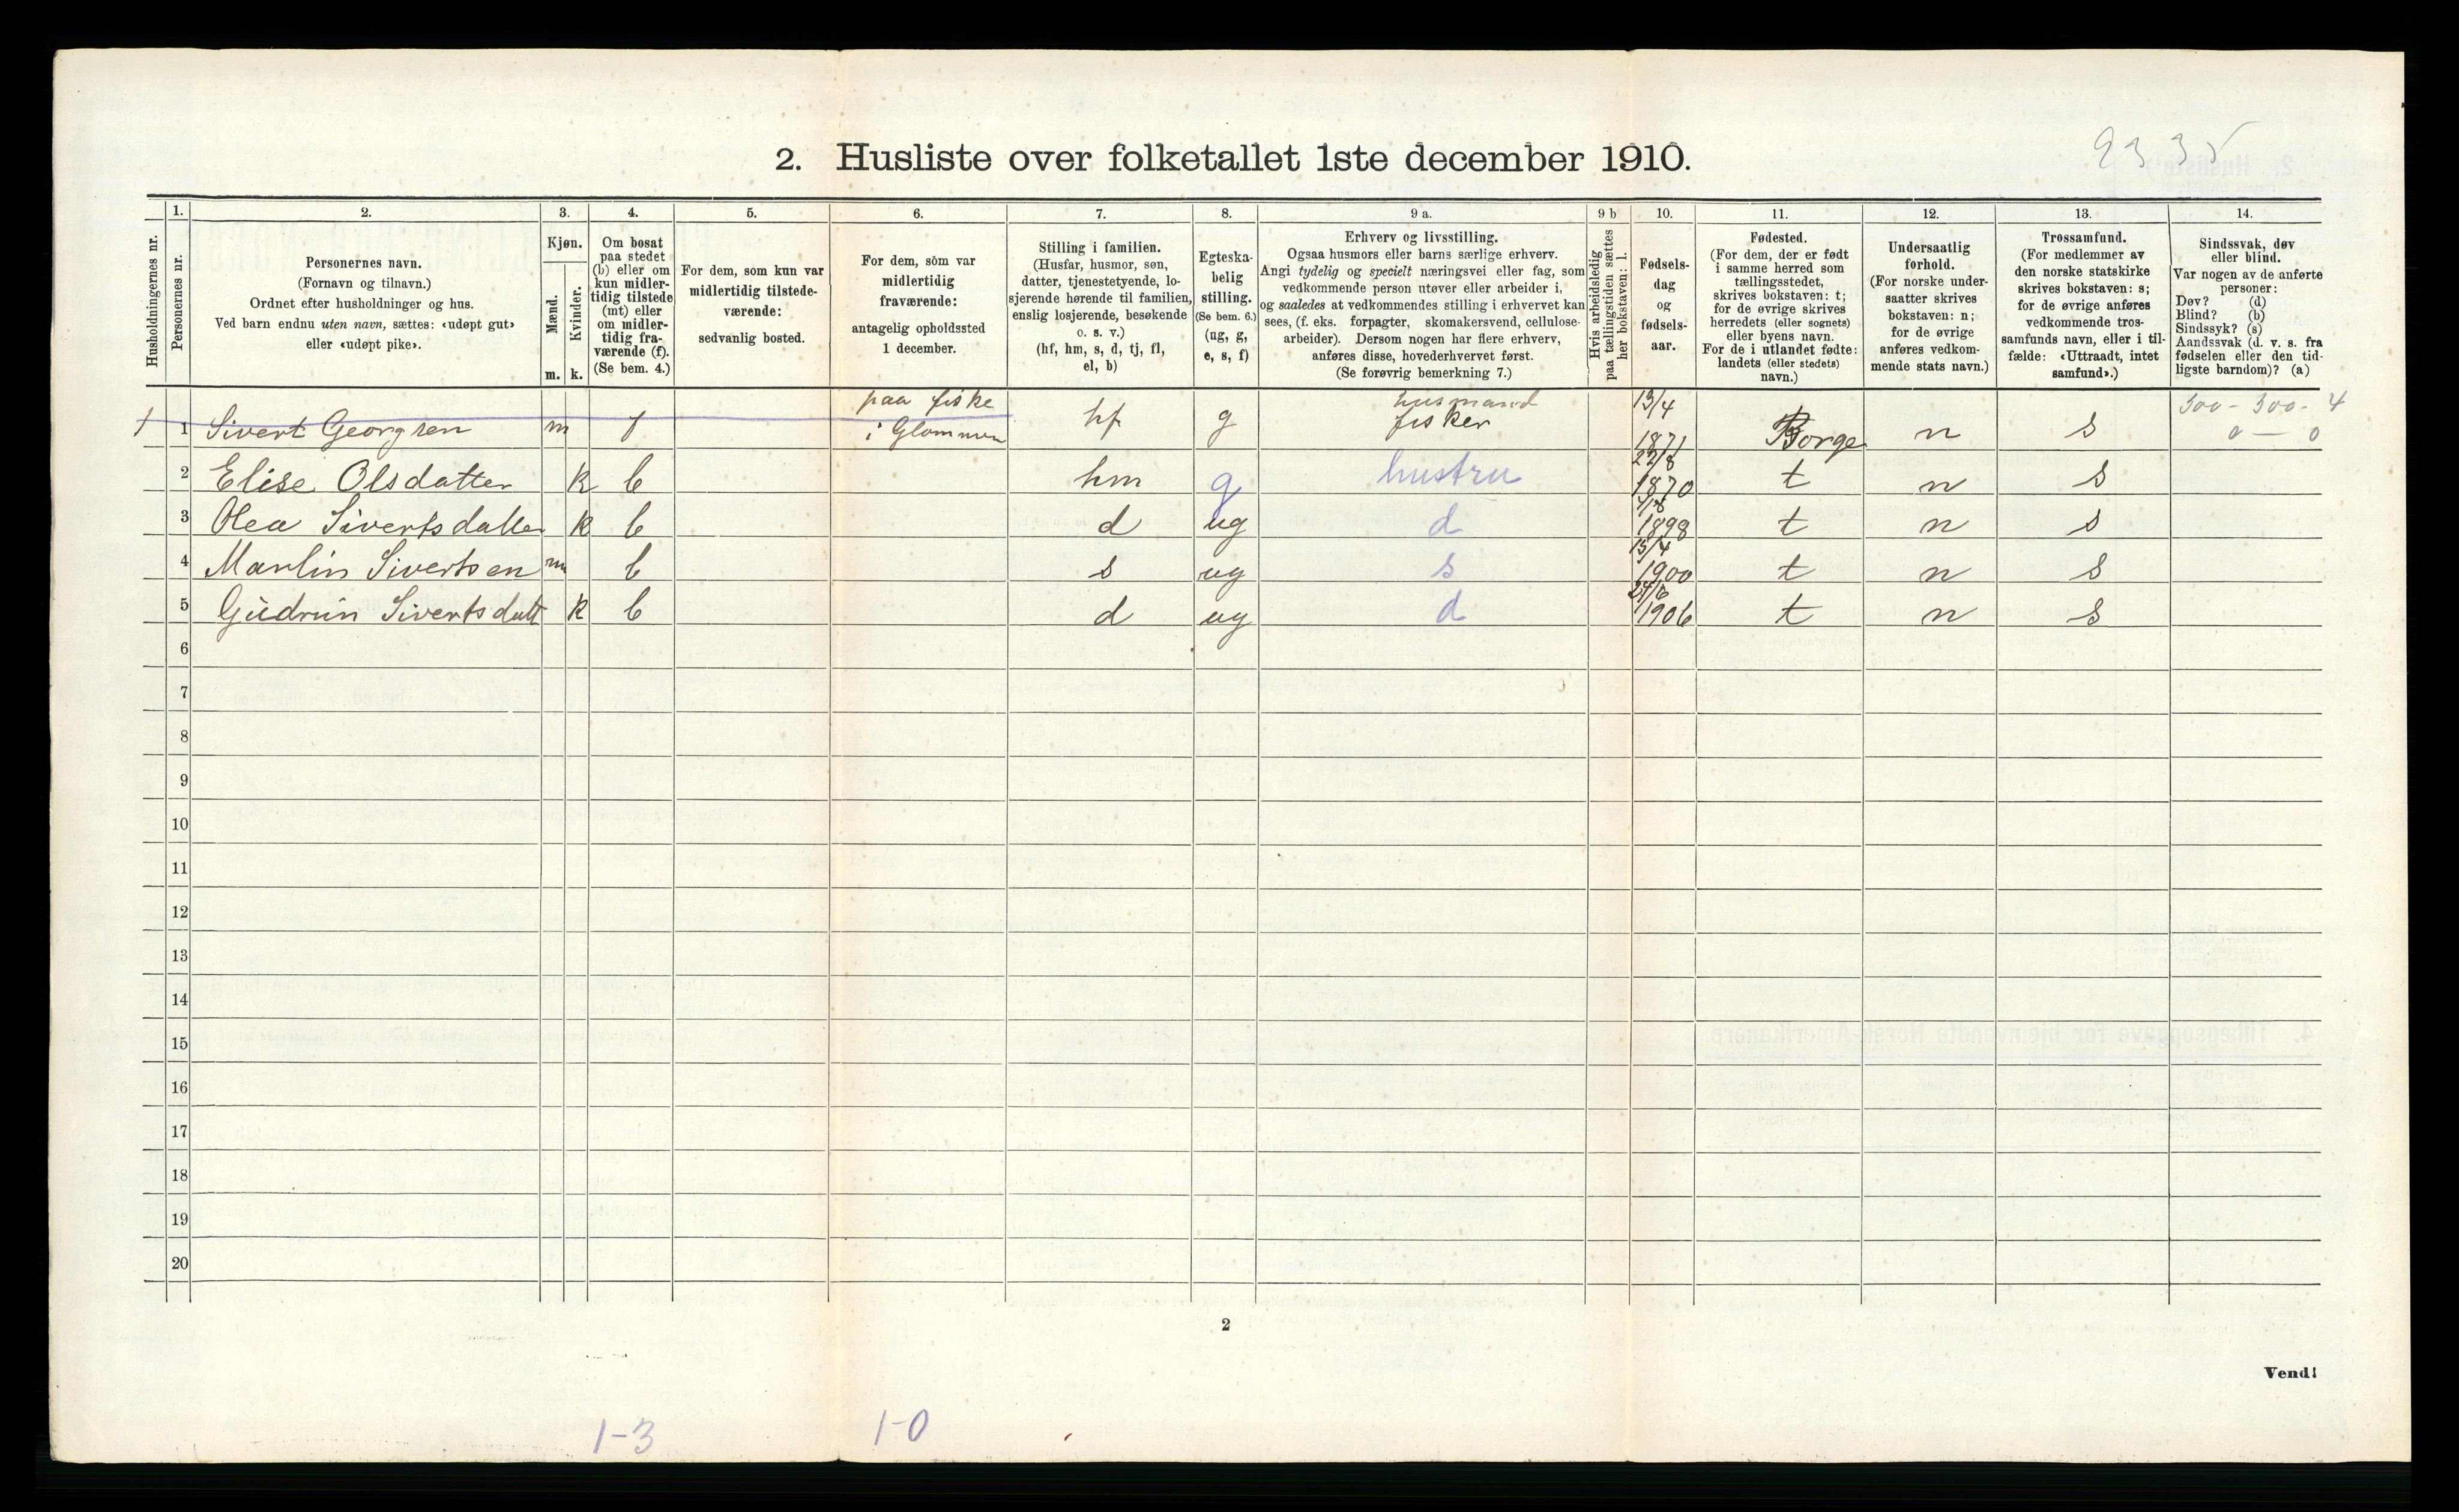 9335
2. Husliste over folketallet 1ste december 1910.
Husholdningernes nr.
1.
Personernes nr.
2.
Personernes navn.
(Fornavn og tilnavn.)
Ordnet efter husholdninger og hus.
Ved barn endnu uten navn, sættes: «udøpt gut»
eller «udøpt pike».
3.
Kjøn.
Mænd.
Kvinder.
m. k.
4.
Om bosat
paa stedet
(b) eller om
kun midler-
tidig tilstede
(mt) eller
om midler-
tidig fra-
værende (f).
(Se bem. 4.)
5.
For dem, som kun var
midlertidig tilstede-
værende:
sedvanlig bosted.
6.
For dem, som var
midlertidig
fraværende:
antagelig opholdssted
1 december.
7.
Stilling i familien.
(Husfar, husmor, søn,
datter, tjenestetyende, lo-
sjerende hørende til familien,
enslig losjerende, besøkende
o. s. v.)
(hf, hm, s, d, tj, fl,
el, b)
8.
Egteska-
belig
stilling.
(Se bem. 6.)
(ug, g,
e, s, f)
9 a.
Erhverv og livsstilling.
Ogsaa husmors eller barns særlige erhverv.
Angi tydelig og specielt næringsvei eller fag, som
vedkommende person utøver eller arbeider i,
og saaledes at vedkommendes stilling i erhvervet kan
sees, (f. eks. forpagter, skomakersvend, cellulose-
arbeider). Dersom nogen har flere erhverv,
anføres disse, hovederhvervet først.
(Se forøvrig bemerkning 7.)
9 b
Hvis arbeidsledig
paa tællingstiden sættes
her bokstaven: l.
10.
Fødsels-
dag
og
fødsels-
aar.
11.
Fødested.
(For dem, der er født
i samme herred som
tællingsstedet,
skrives bokstaven: t;
for de øvrige skrives
herredets (eller sognets)
eller byens navn.
For de i utlandet fødte:
landets (eller stedets)
navn.)
12.
Undersaatlig
forhold.
(For norske under-
saatter skrives
bokstaven: n;
for de øvrige
anføres vedkom-
mende stats navn.)
13.
Trossamfund.
(For medlemmer av
den norske statskirke
skrives bokstaven: s;
for de øvrige anføres
vedkommende tros-
samfunds navn, eller i til-
fælde: «Uttraadt, intet
samfund».)
14.
Sindssvak, døv
eller blind.
Var nogen av de anførte
personer:
Døv? (d)
Blind? (b)
Sindssyk? (s)
Aandssvak (d. v. s. fra
fødselen eller den tid-
ligste barndom)? (a)
paa fiske husmand 13/4 300 - 300 - 4
1 1 Sivert Georgsen m f i Glommen hf g fisker 1871 Borge n s 0 — 0
2 Elise Olsdatter k b hm g hustru 22/8 1870 t n s
3 Olea Sivertsdatter k b d ug d 1898 t n s
4 Marlin Sivertsen m b s ug s 15/4 1900 t n s
5 Gudrun Sivertsdatt k b d ug d 1906 t n s
6
7
8
9
10
11
12
13
14
15
16
17
18
19
20
2
Vend!
1-3 1-0